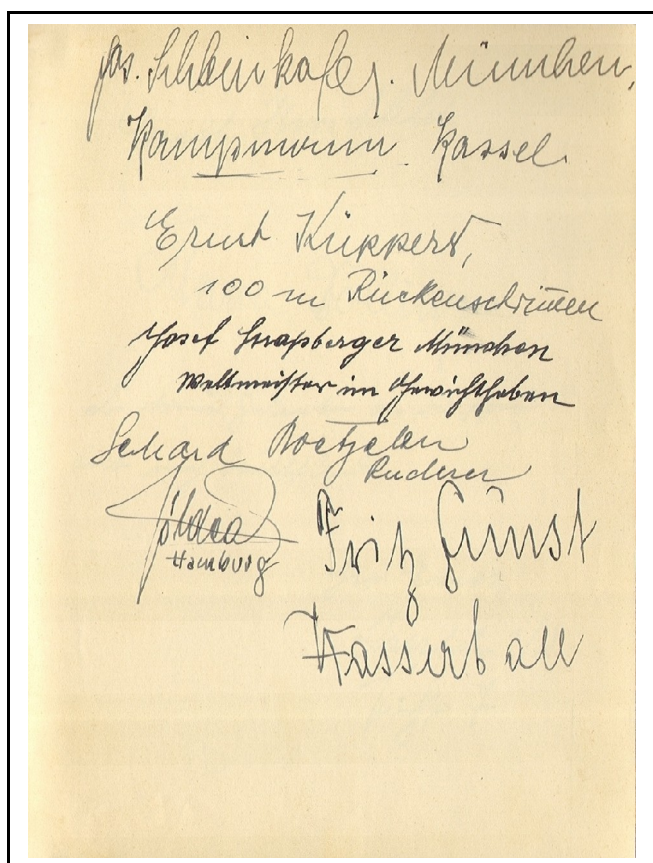 Jos. Schleinkofer. München,
Kampmann. Kassel.
Ernst Küppers,
100 m Rückenschwim̄en
Josef Straßberger München
Weltmeister im Gewichtheben
Gerhard Boetzelen
Ruderer
Hamburg
Fritz Gunst
Wasserball